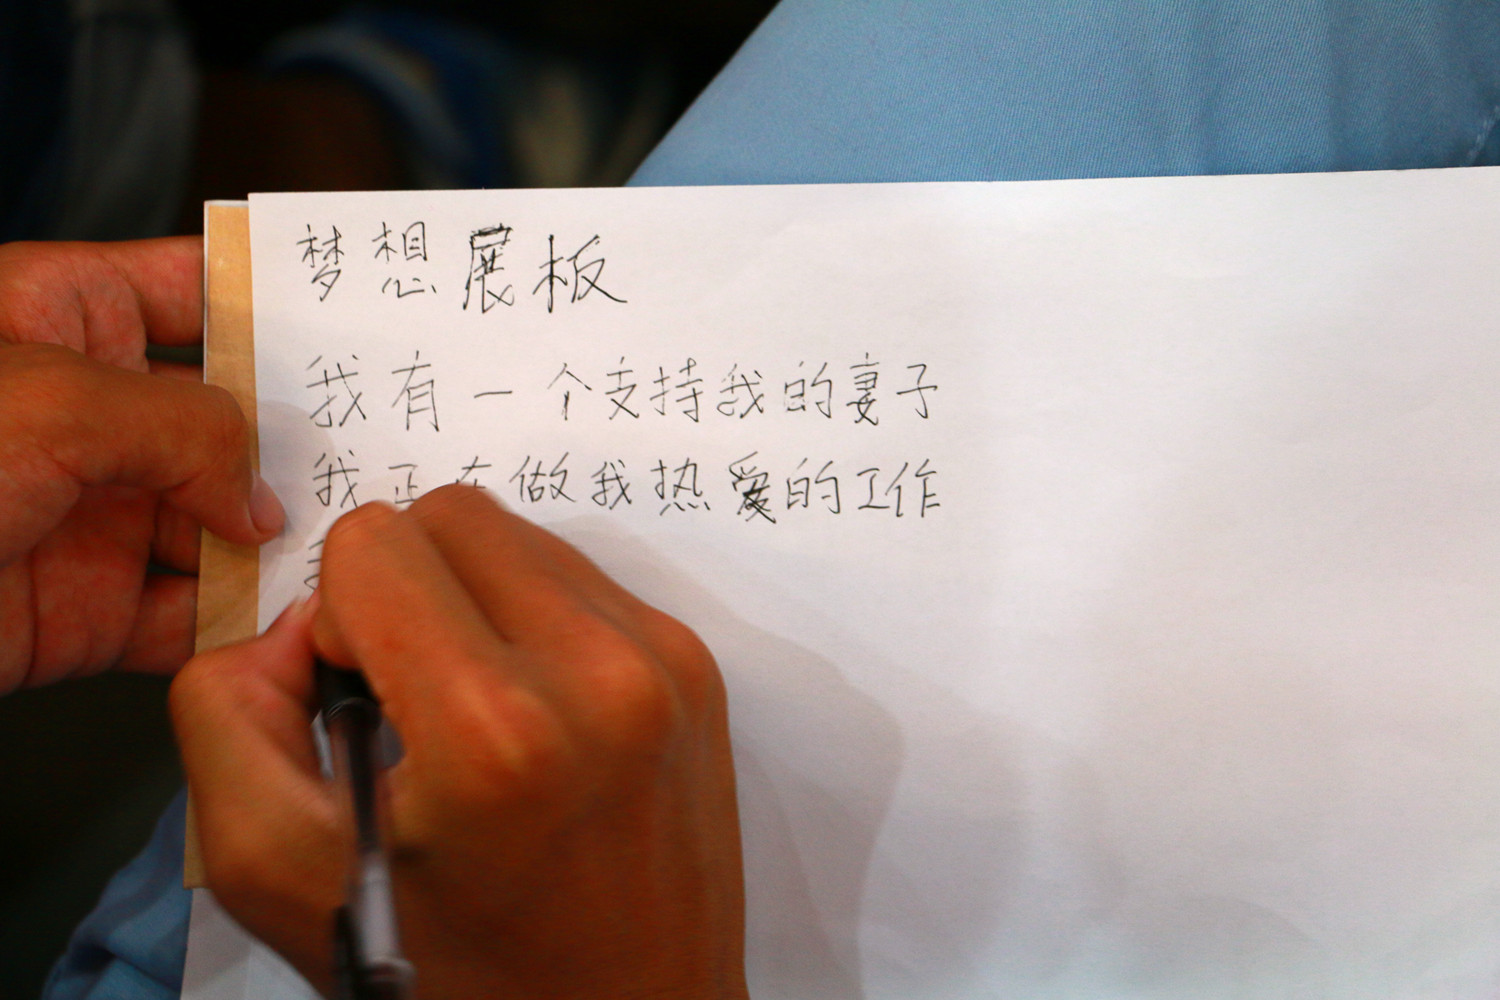 梦想展板
我有一个支持我的妻子
我正在做我热爱的工作